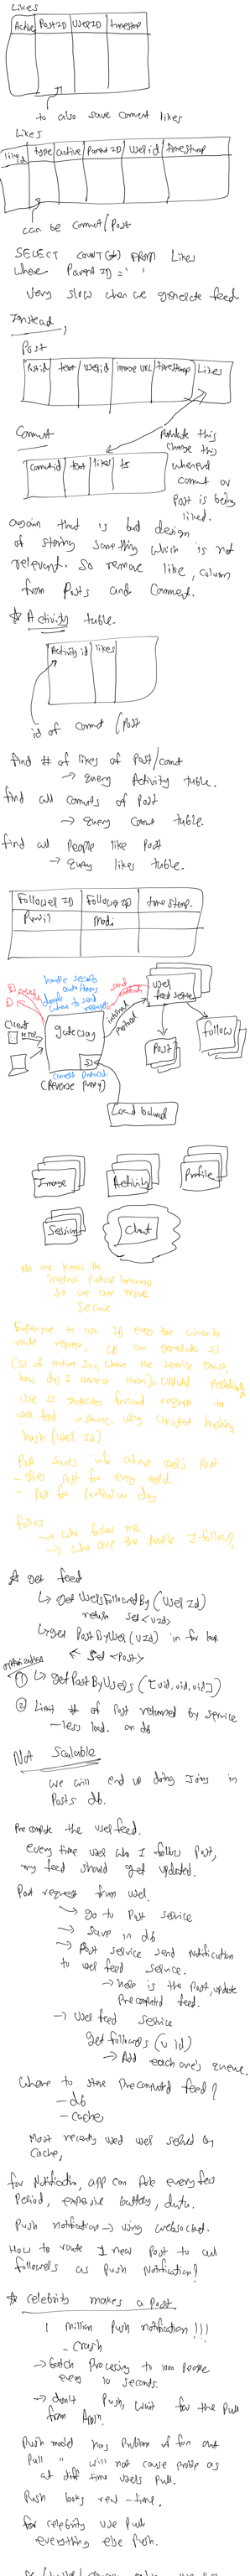 Likes
Active PostID UserID timestamp
to also save comment likes
Likes
likeid type active ParentID Userid timestamp
can be Comment/Post
SELECT COUNT(*) FROM Likes
where ParentID = ' '
Very slow when we generate feed
Instead,
Post
Postid text userid image URL timestamp Likes
Comment
comentid text likes ts
Populate this
change this
whenever
comment or
Post is being
liked.
again that is bad design
of storing something which is not
relevant. So remove like, column
from Posts and Comment.
Activity table.
Activity id likes
id of Comment/Post
find # of likes of Post/comt
→ query Activity table.
find all comments of Post
→ query Comt table.
find all People like Post
→ query likes table.
Follower ID Followee ID timestamp.
Modi
handle security
decide
where to send
request
send
user
feed service
client
HTTP
gateway
internal
protocol
Post
follow
SS
(Reverse Proxy)
Load balancer
Image
Activity
Profile
Session
Chat
No one knows the
internal protocol language
so we are more
secure
Expensive to use LB every time when to
route request, LB can generate SS
Use SS gateway forward request to
user feed instance. using consistent hashing
hash (user Id)
Post saves info about user's Post
- Post for Particular day
follow
→ who follow me
→ who are the people I follow,
get feed
↳ get UsersFollowedBy (UserId)
return set<uid>
↳ get PostByUser (uId) in for loop
← Set <Post>
optimization
① ↳ getPostByUsers ([uid, uid, uid])
② Limit # of Post returned by service
- less load. on db
Not Scalable
we will end up doing Joins in
Posts db.
Pre compute the user feed.
every time user who I follow Post,
my feed should get updated.
Post request from user.
→ go to Post service
→ save in db
→ Post service send notification
to user feed service.
→ here is the Post, update
Precomputed feed.
→ User feed service
get followers (uId)
→ Add each one's queue.
where to store Precomputed feed?
- db
- cache
Most recently used user served by
cache,
for Notification, app can Pole every few
Period, expensive battery, data.
Push notification → using websocket.
How to route 1 new Post to all
followers as Push Notification?
celebrity makes a Post
1 million Push notification !!!
- crash
→ Batch Processing to 1000 People
every 10 seconds.
→ don't Push, wait for the Pull
from App.
Push model has Problem of fan out
Pull " will not cause problem as
at diff time users Pull.
Push looks real-time.
for celebrity use Pull
everything else Push.